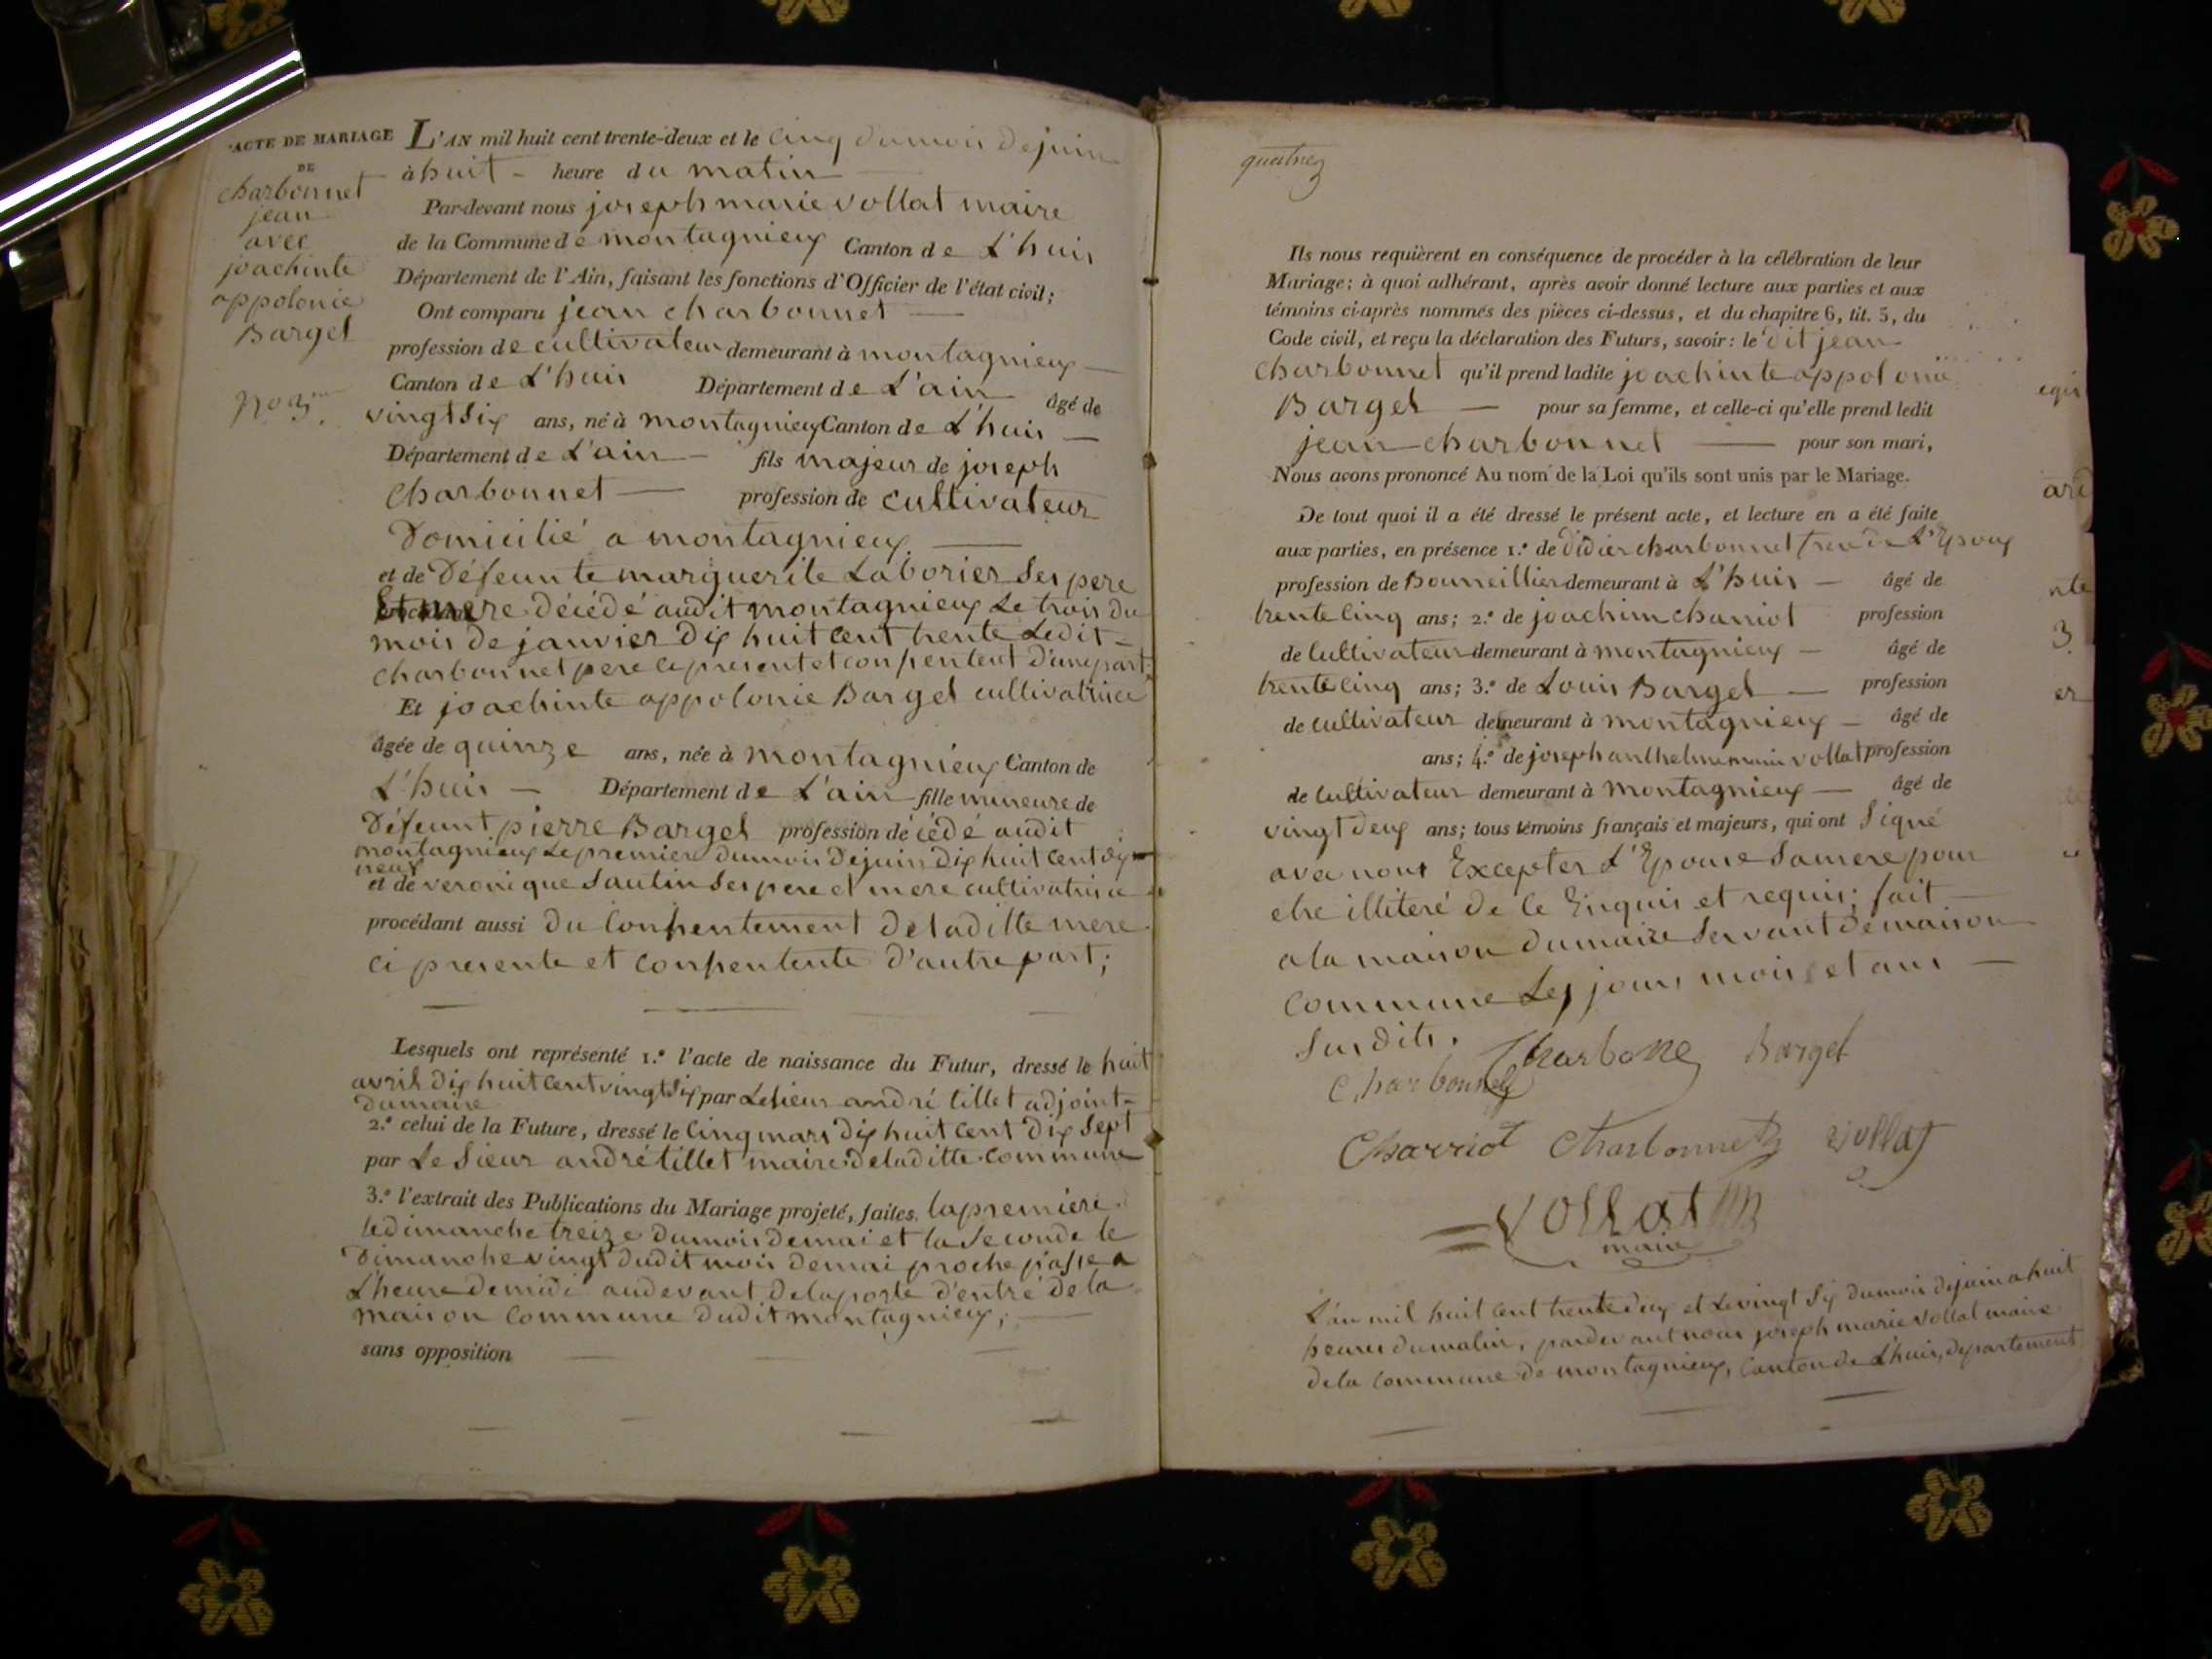 ACTE DE MARIAGE
DE
charbonnet
jean
avec
joachinte
appolonie
Bargel
L'AN mil huit cent trente-deux et le cinq du mois de juin
à huit heure du matin
Par-devant nous joseph marie vollat maire
de la Commune de montagnieux Canton de L'huis
Département de l'Ain, faisant les fonctions d'Officier de l'état civil;
Ont comparu jean charbonnet
profession de cultivateur demeurant à montagnieux
Canton de L'huis Département de L'ain âgé de
vingt six ans, né à montagnieux Canton de L'huis
Département de L'ain fils majeur de joseph
Charbonnet profession de cultivateur
Domicilié a montagnieux
et de Défeunte marguerite Laborier ses pere
Et mere décédé audit montagnieux Le trois du
mois de janvier dix huit cent trente Ledit
charbonnet pere ci present et consentent d'une part
Et joachinte appolonie Bargel cultivatrice
âgée de quinze ans, née à montagnieux Canton de
L'huis Département de L'ain fille mineure de
Défeunt pierre Bargel profession décédé audit
montagnieux Le premier du mois de juin dix huit cent dix
neuf
et de veronique Sautin ses pere et mere cultivatrice
procédant aussi du consentement de laditte mere
ci presente et consentente d'autre part;
Lesquels ont représenté 1.° l'acte de naissance du Futur, dressé le huit
avril dix huit cent vingt six par Le sieur andré tillet adjoint
du maire
2.° celui de la Future, dressé le cinq mars dix huit cent dix sept
par Le Sieur andré tillet maire de laditte commune
3.° l'extrait des Publications du Mariage projeté, faites, la premiere
le dimanche treize du mois de mai et la seconde le
Dimanche vingt dudit mois de mai proche passe a
L'heure de midi au devant de la porte d'entré de la
maison commune dudit montagnieux;
sans opposition
Ils nous requièrent en conséquence de procéder à la célébration de leur
Mariage; à quoi adhérant, après avoir donné lecture aux parties et aux
témoins ci-après nommés des pièces ci-dessus, et du chapitre 6, tit. 5, du
Code civil, et reçu la déclaration des Futurs, savoir: le dit jean
charbonnet qu'il prend ladite joachinte appolonie
Bargel pour sa femme, et celle-ci qu'elle prend ledit
jean charbonnet pour son mari,
Nous avons prononcé Au nom de la Loi qu'ils sont unis par le Mariage.
De tout quoi il a été dressé le présent acte, et lecture en a été faite
aux parties, en présence 1.° de didier charbonnet frere de L'Epoux
profession de Bourreillier demeurant à L'huis âgé de
trente cinq ans; 2.° de joachim charriot profession
de cultivateur demeurant à montagnieux âgé de
trente cinq ans; 3.° de Louis Bargel profession
de cultivateur demeurant à montagnieux âgé de
ans; 4.° de joseph anthelme marie vollat profession
de cultivateur demeurant à montagnieux âgé de
vingt deux ans; tous témoins français et majeurs, qui ont signé
avec nous Excepter L'Epouse sa mere pour
etre illiteré de ce Enquis et requis; fait
a la maison du maire servant de maison
commune Les jours mois et ans
susdits.
Charbonnet Bargel
Charbonnet
Charriot Charbonnet vollat
Vollat
maire
L'an mil huit cent trente deux et le vingt six du mois de juin a huit
heures du matin, pardevant nous joseph marie vollat maire
de la commune de montagnieux, canton de L'huis, departement